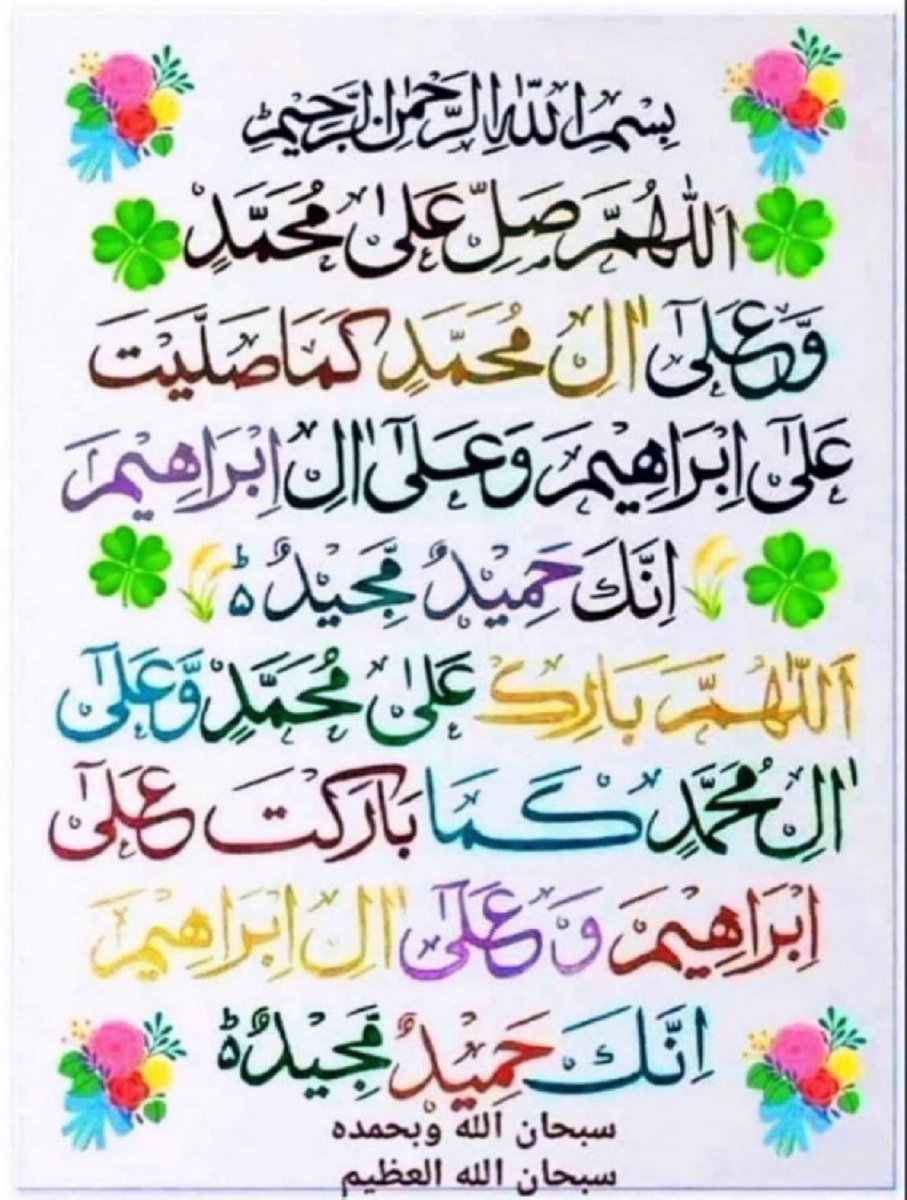 بِسْمِ اللّٰهِ الرَّحْمٰنِ الرَّحِيْمِ
اَللّٰهُمَّ صَلِّ عَلٰى مُحَمَّدٍ
وَّعَلٰٓى اٰلِ مُحَمَّدٍ كَمَا صَلَّيْتَ
عَلٰٓى اِبْرَاهِيْمَ وَعَلٰٓى اٰلِ اِبْرَاهِيْمَ
اِنَّكَ حَمِيْدٌ مَّجِيْدٌ ۵ؕ
اَللّٰهُمَّ بَارِكْ عَلٰى مُحَمَّدٍ وَّعَلٰٓى
اٰلِ مُحَمَّدٍ كَمَا بَارَكْتَ عَلٰٓى
اِبْرَاهِيْمَ وَعَلٰٓى اٰلِ اِبْرَاهِيْمَ
اِنَّكَ حَمِيْدٌ مَّجِيْدٌ ۵ؕ
سبحان الله وبحمده
سبحان الله العظيم